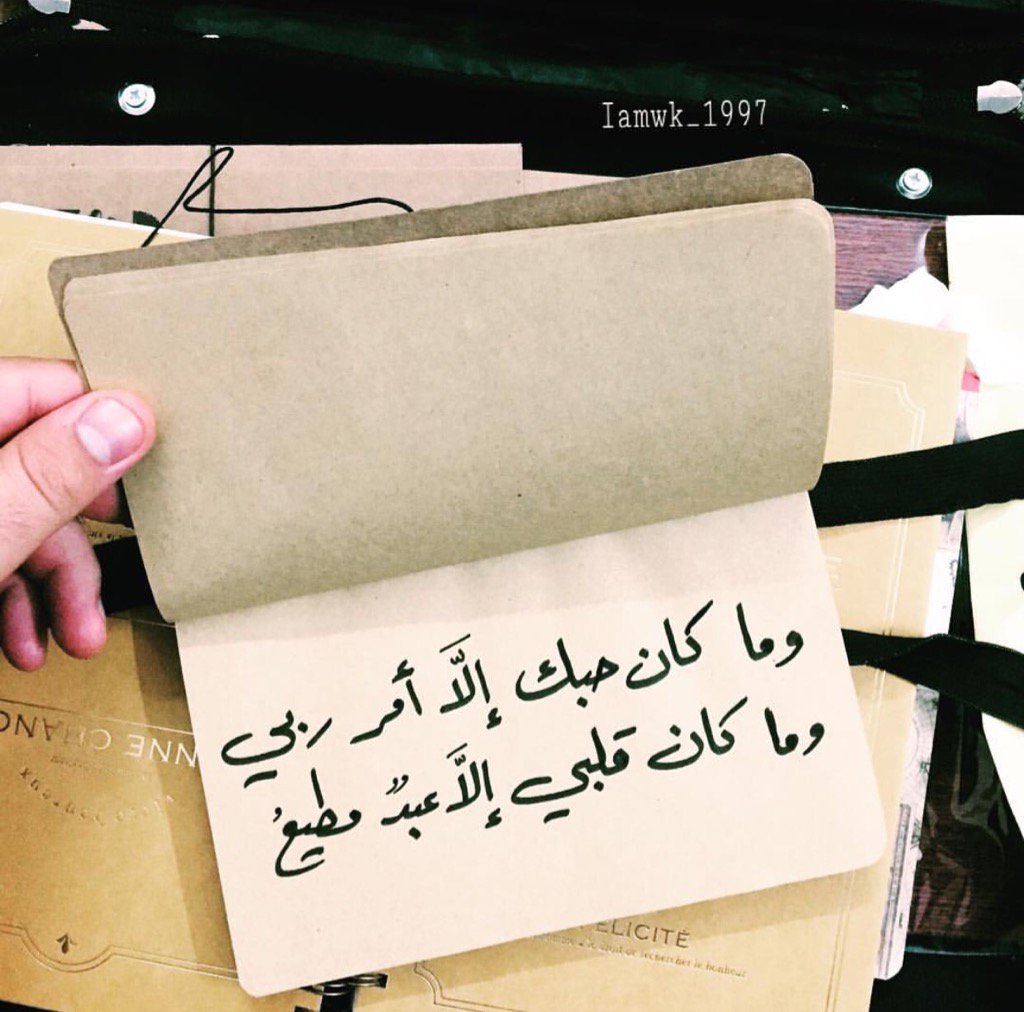 Iamwk_1997
وما كان حبك إلَّا أمر ربي
وما كان قلبي إلَّا عبدٌ مطيعُ
NNE CHANC
FÉLICITÉ
de rechercher le bonheur